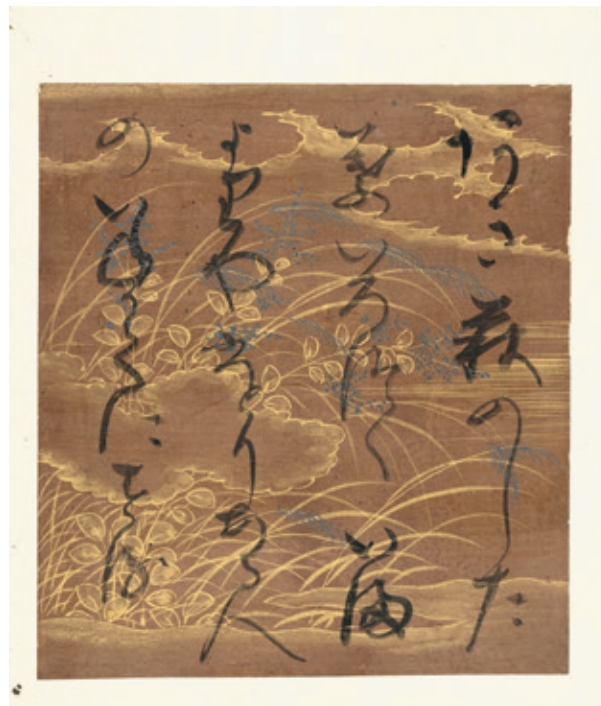 あき萩のした
葉いろつく いま
よりやひとりある人
のいねかてにする